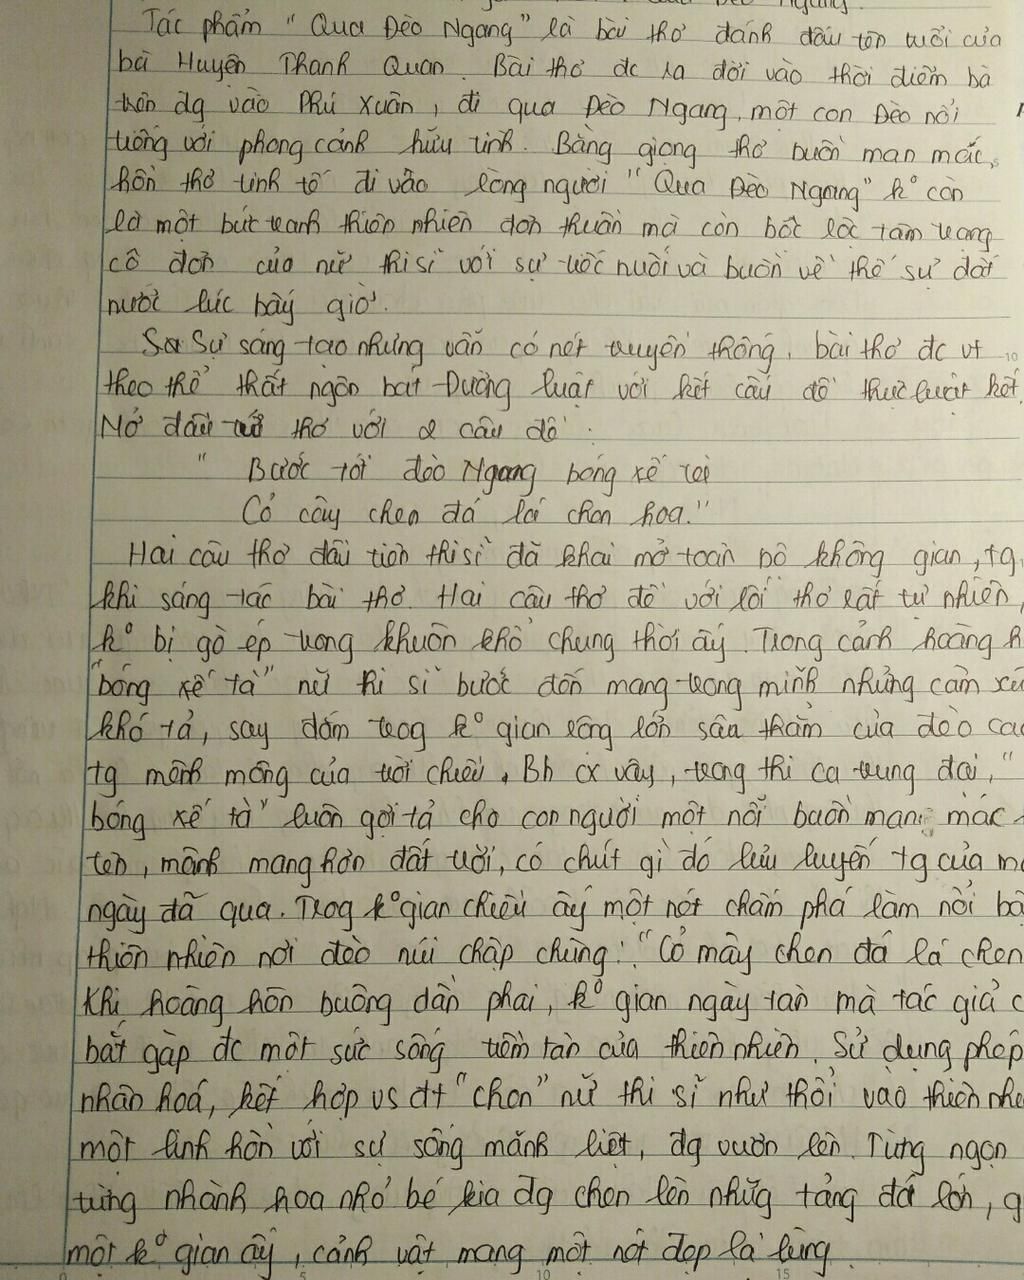 Qua Đèo Ngang.
Tác phẩm " Qua Đèo Ngang" là bài thơ đánh dấu tên tuổi của
bà Huyện Thanh Quan. Bài thơ đc ra đời vào thời điểm bà
trên đg vào Phú Xuân, đi qua Đèo Ngang, một con Đèo nổi
tiếng với phong cảnh hữu tình. Bằng giọng thơ buồn man mác,
hồn thơ tinh tế đi vào lòng người " Qua Đèo Ngang" k° còn
là một bức tranh thiên nhiên đơn thuần mà còn bộc lộc tâm trạng
cô đơn của nữ thi sĩ với sự tiếc nuối và buồn về thế sự đất
nước lúc bấy giờ.
Sự sáng tạo nhưng vẫn có nét truyền thống, bài thơ đc vt
theo thể thất ngôn bát Đường luật với kết cấu đề thực luật kết
Mở đầu thơ với 2 câu đề :
" Bước tới đèo Ngang bóng xế tà
Cỏ cây chen đá lá chen hoa."
Hai câu thơ đầu tiên thi sĩ đã khai mở toàn bộ không gian, tg
khi sáng tác bài thơ. Hai câu thơ đề với lối thơ rất tự nhiên,
k° bị gò ép trong khuôn khổ chung thời ấy. Trong cảnh hoàng h
"bóng xế tà" nữ thi sĩ bước đến mang trong mình những cảm xú
khó tả, say đắm trog k° gian rộng lớn sâu thẳm của đèo cao
tg mênh mông của trời chiều. Bh cx vậy, trong thi ca trung đại, "
bóng xế tà" luôn gợi tả cho con người một nỗi buồn mang mác
tên, mênh mang hơn đất trời, có chút gì đó lưu luyến tg của m
ngày đã qua. Trog k° gian chiều ấy một nét chấm phá làm nổi bậ
thiên nhiên nơi đèo núi chập chùng: "Cỏ mây chen đá lá chen
Khi hoàng hôn buông dần phai, k° gian ngày tàn mà tác giả c
bắt gặp đc một sức sống tiềm tàn của thiên nhiên. Sử dụng phép
nhân hoá, kết hợp vs đt "chen" nữ thi sĩ như thổi vào thiên nhi
một linh hồn với sự sống mãnh liệt, đg vươn lên. Từng ngọn
từng nhành hoa nhỏ bé kia đg chen lên nhữg tảng đá lớn, g
một k° gian ấy, cảnh vật mang một nét đẹp lạ lùng